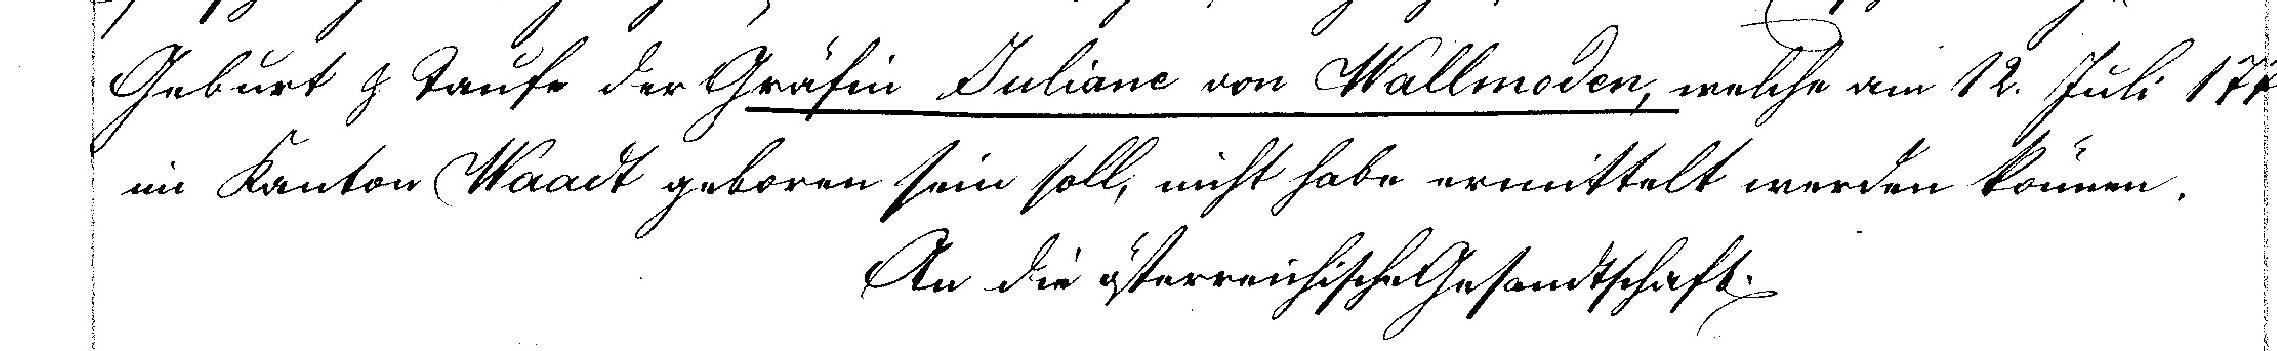 Geburt & Taufe der Gräfin Juliane von Wallmoden, welche am 12. Juli
im Kanton Waadt geboren sein soll, nicht habe ermittelt werden können.
An die österreichische Gesandtschaft.